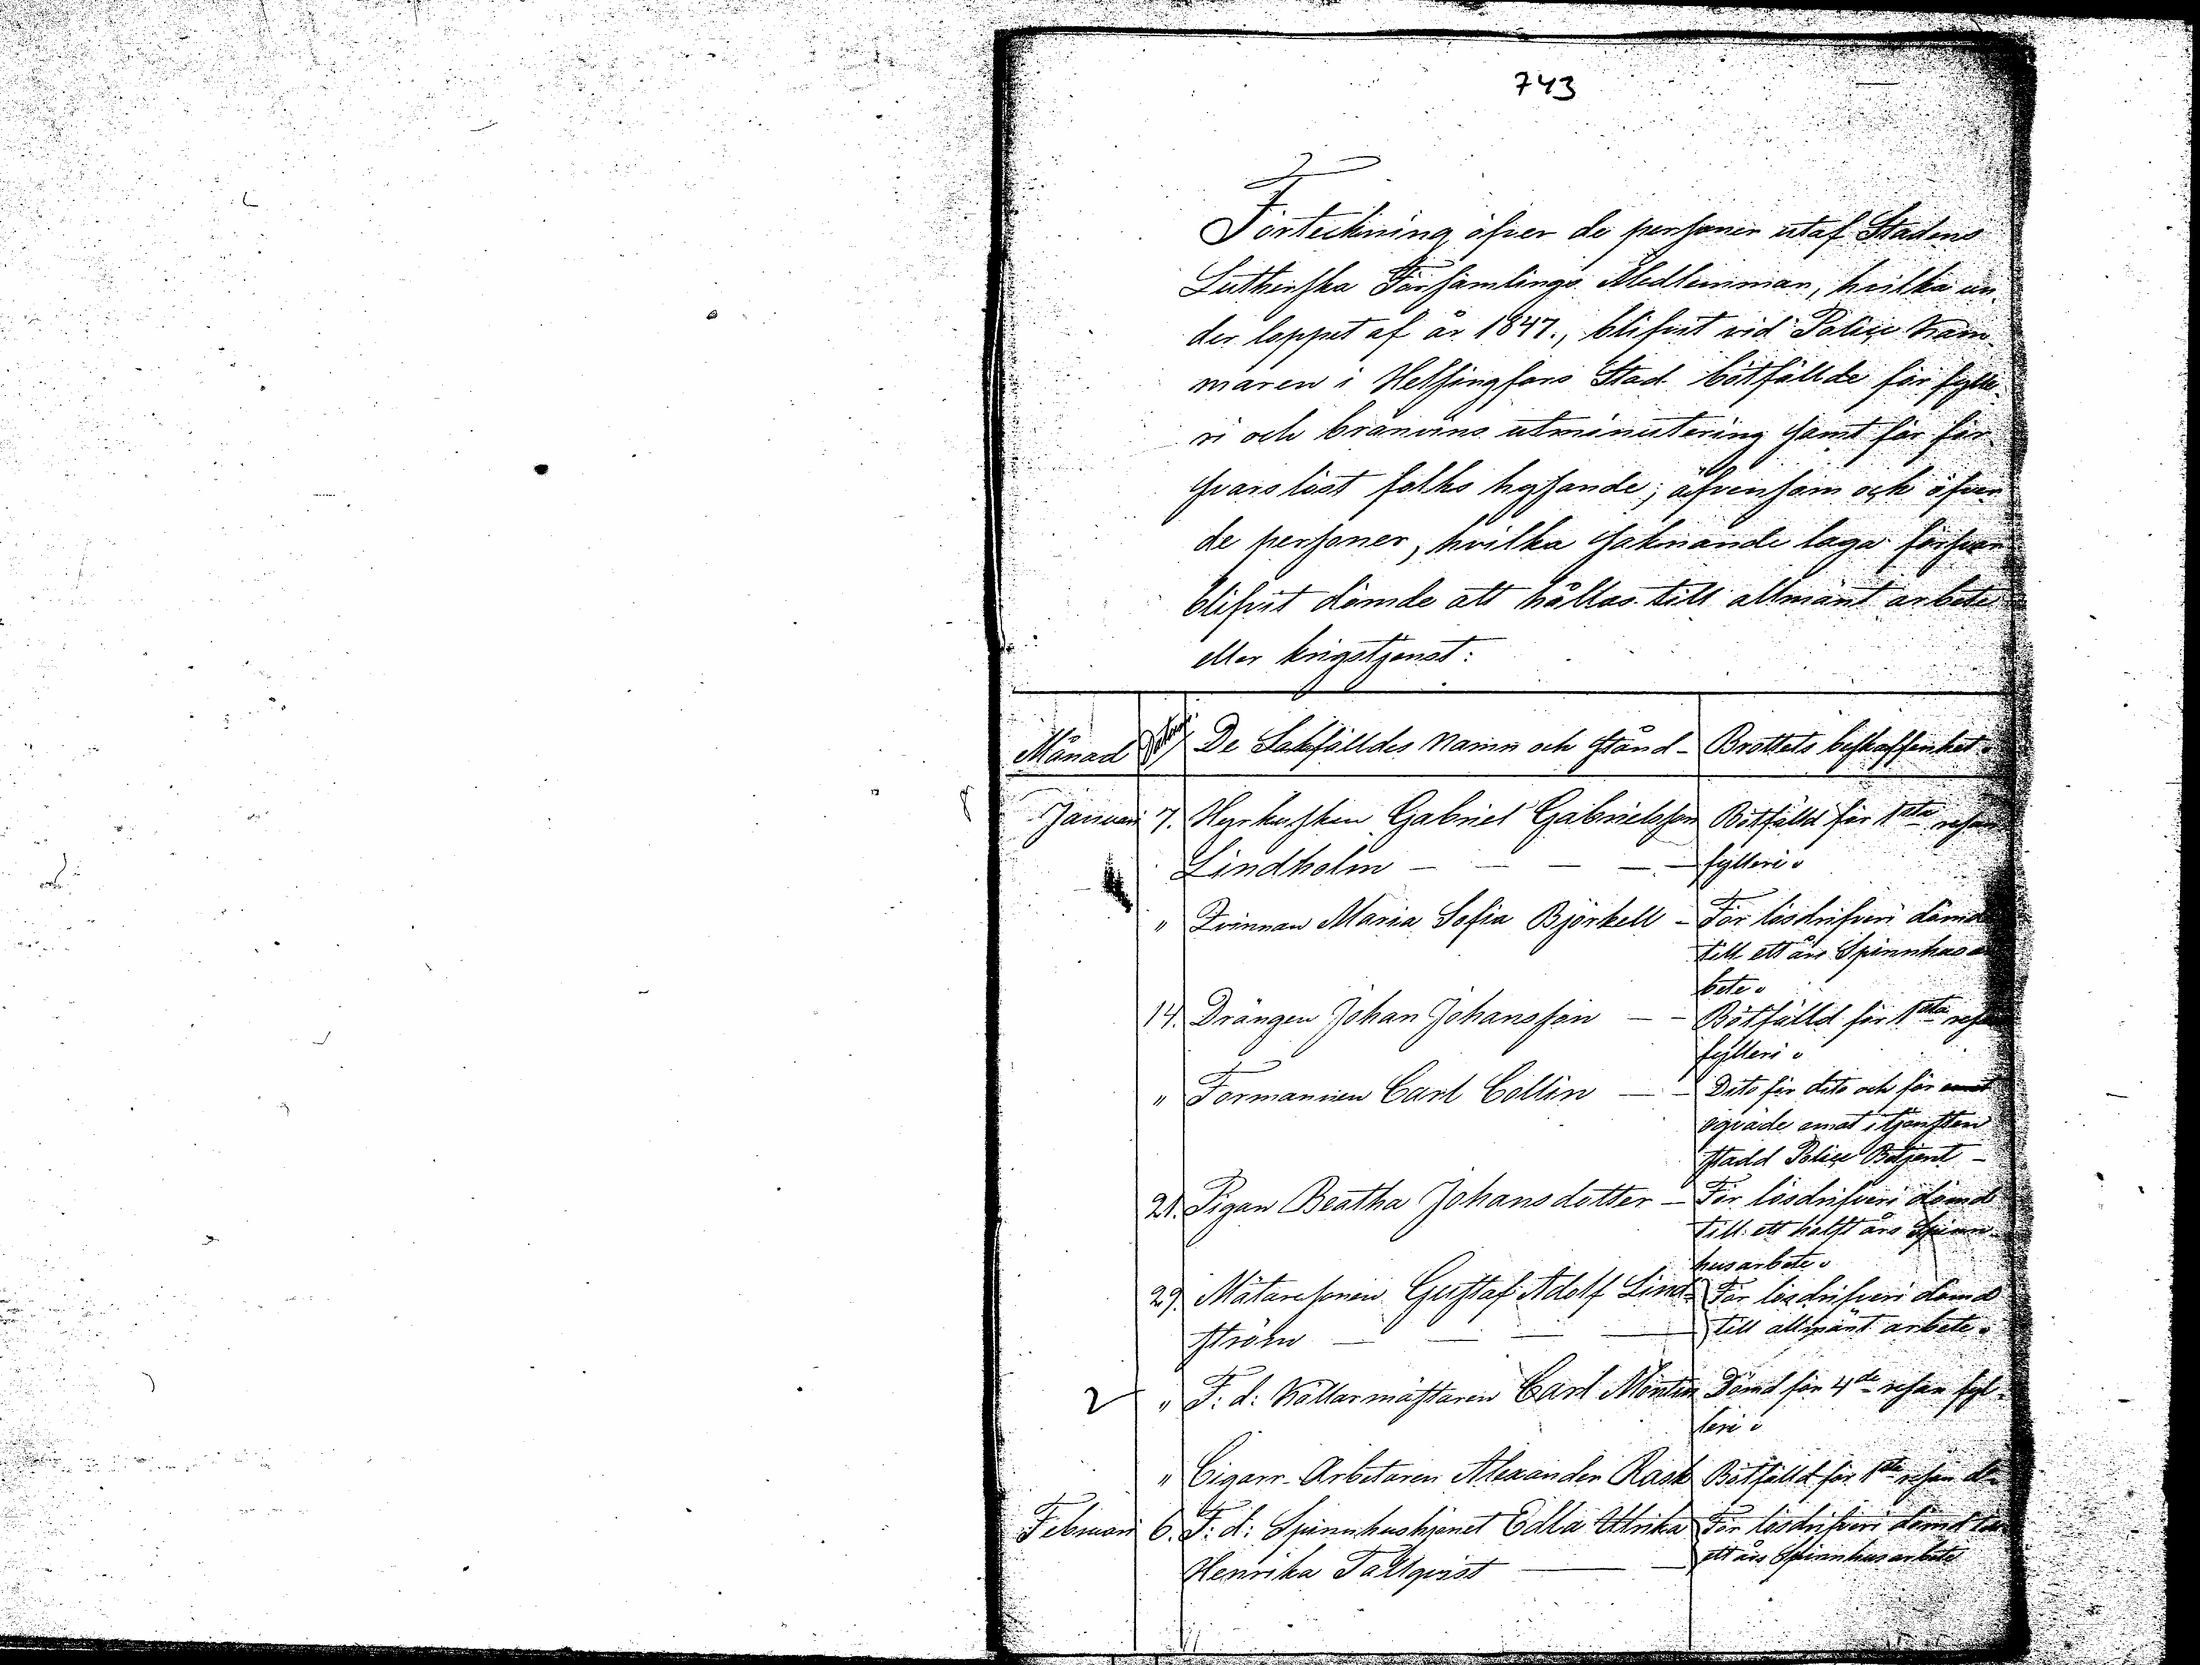 743
Förteckning öfver de personer utaf Stadens
Lutherska Församlings Medlemmar, hvilka un-
der loppet af år 1847., blifvit vid Police Kam-
maren i Helsingfors Stad bötfällde för fylle-
ri och bränvins utminutering samt för för-
svarslöst folks hysande; äfvensom och öfver
de personer, hvilka saknande laga försvar
blifvit dömde att hållas till allmänt arbete
eller krigstjenst:
Månad Datum De Sakfälldes Namn och stånd - Brottets beskaffenhet.
Januari 7. Hyrkusken Gabriel Gabrielsson Bötfälld för 1sta resan
Lindholm — — — — fylleri.
" Qvinnan Maria Sofia Björkell - För lösdrifveri dömd
till ett års Spinnhus ar
bete.
14. Drängen Johan Johansson — - Bötfälld för 1sta resan
fylleri.
" Formannen Carl Collin — - Dito för dito och för
ogväde emot i tjensten
stadd Police Betjent -
21. Pigan Beatha Johansdotter - För lösdrifveri dömd
till ett halft års Spinn-
husarbete.
29. Mätaresonen Gustaf Adolf Lind- För lösdrifveri dömd
ström — — — — till allmänt arbete.
2 " F: d: Källarmästaren Carl Montin Dömd för 4de resan fyl-
leri.
" Cigarr-Arbetaren Alexander Rask Bötfälld för 1sta resan do
Februari 6. F: d: Spinnhushjonet Edla Ulrika För lösdrifveri dömd till
Henrika Tallqvist — — ett års Spinnhusarbete